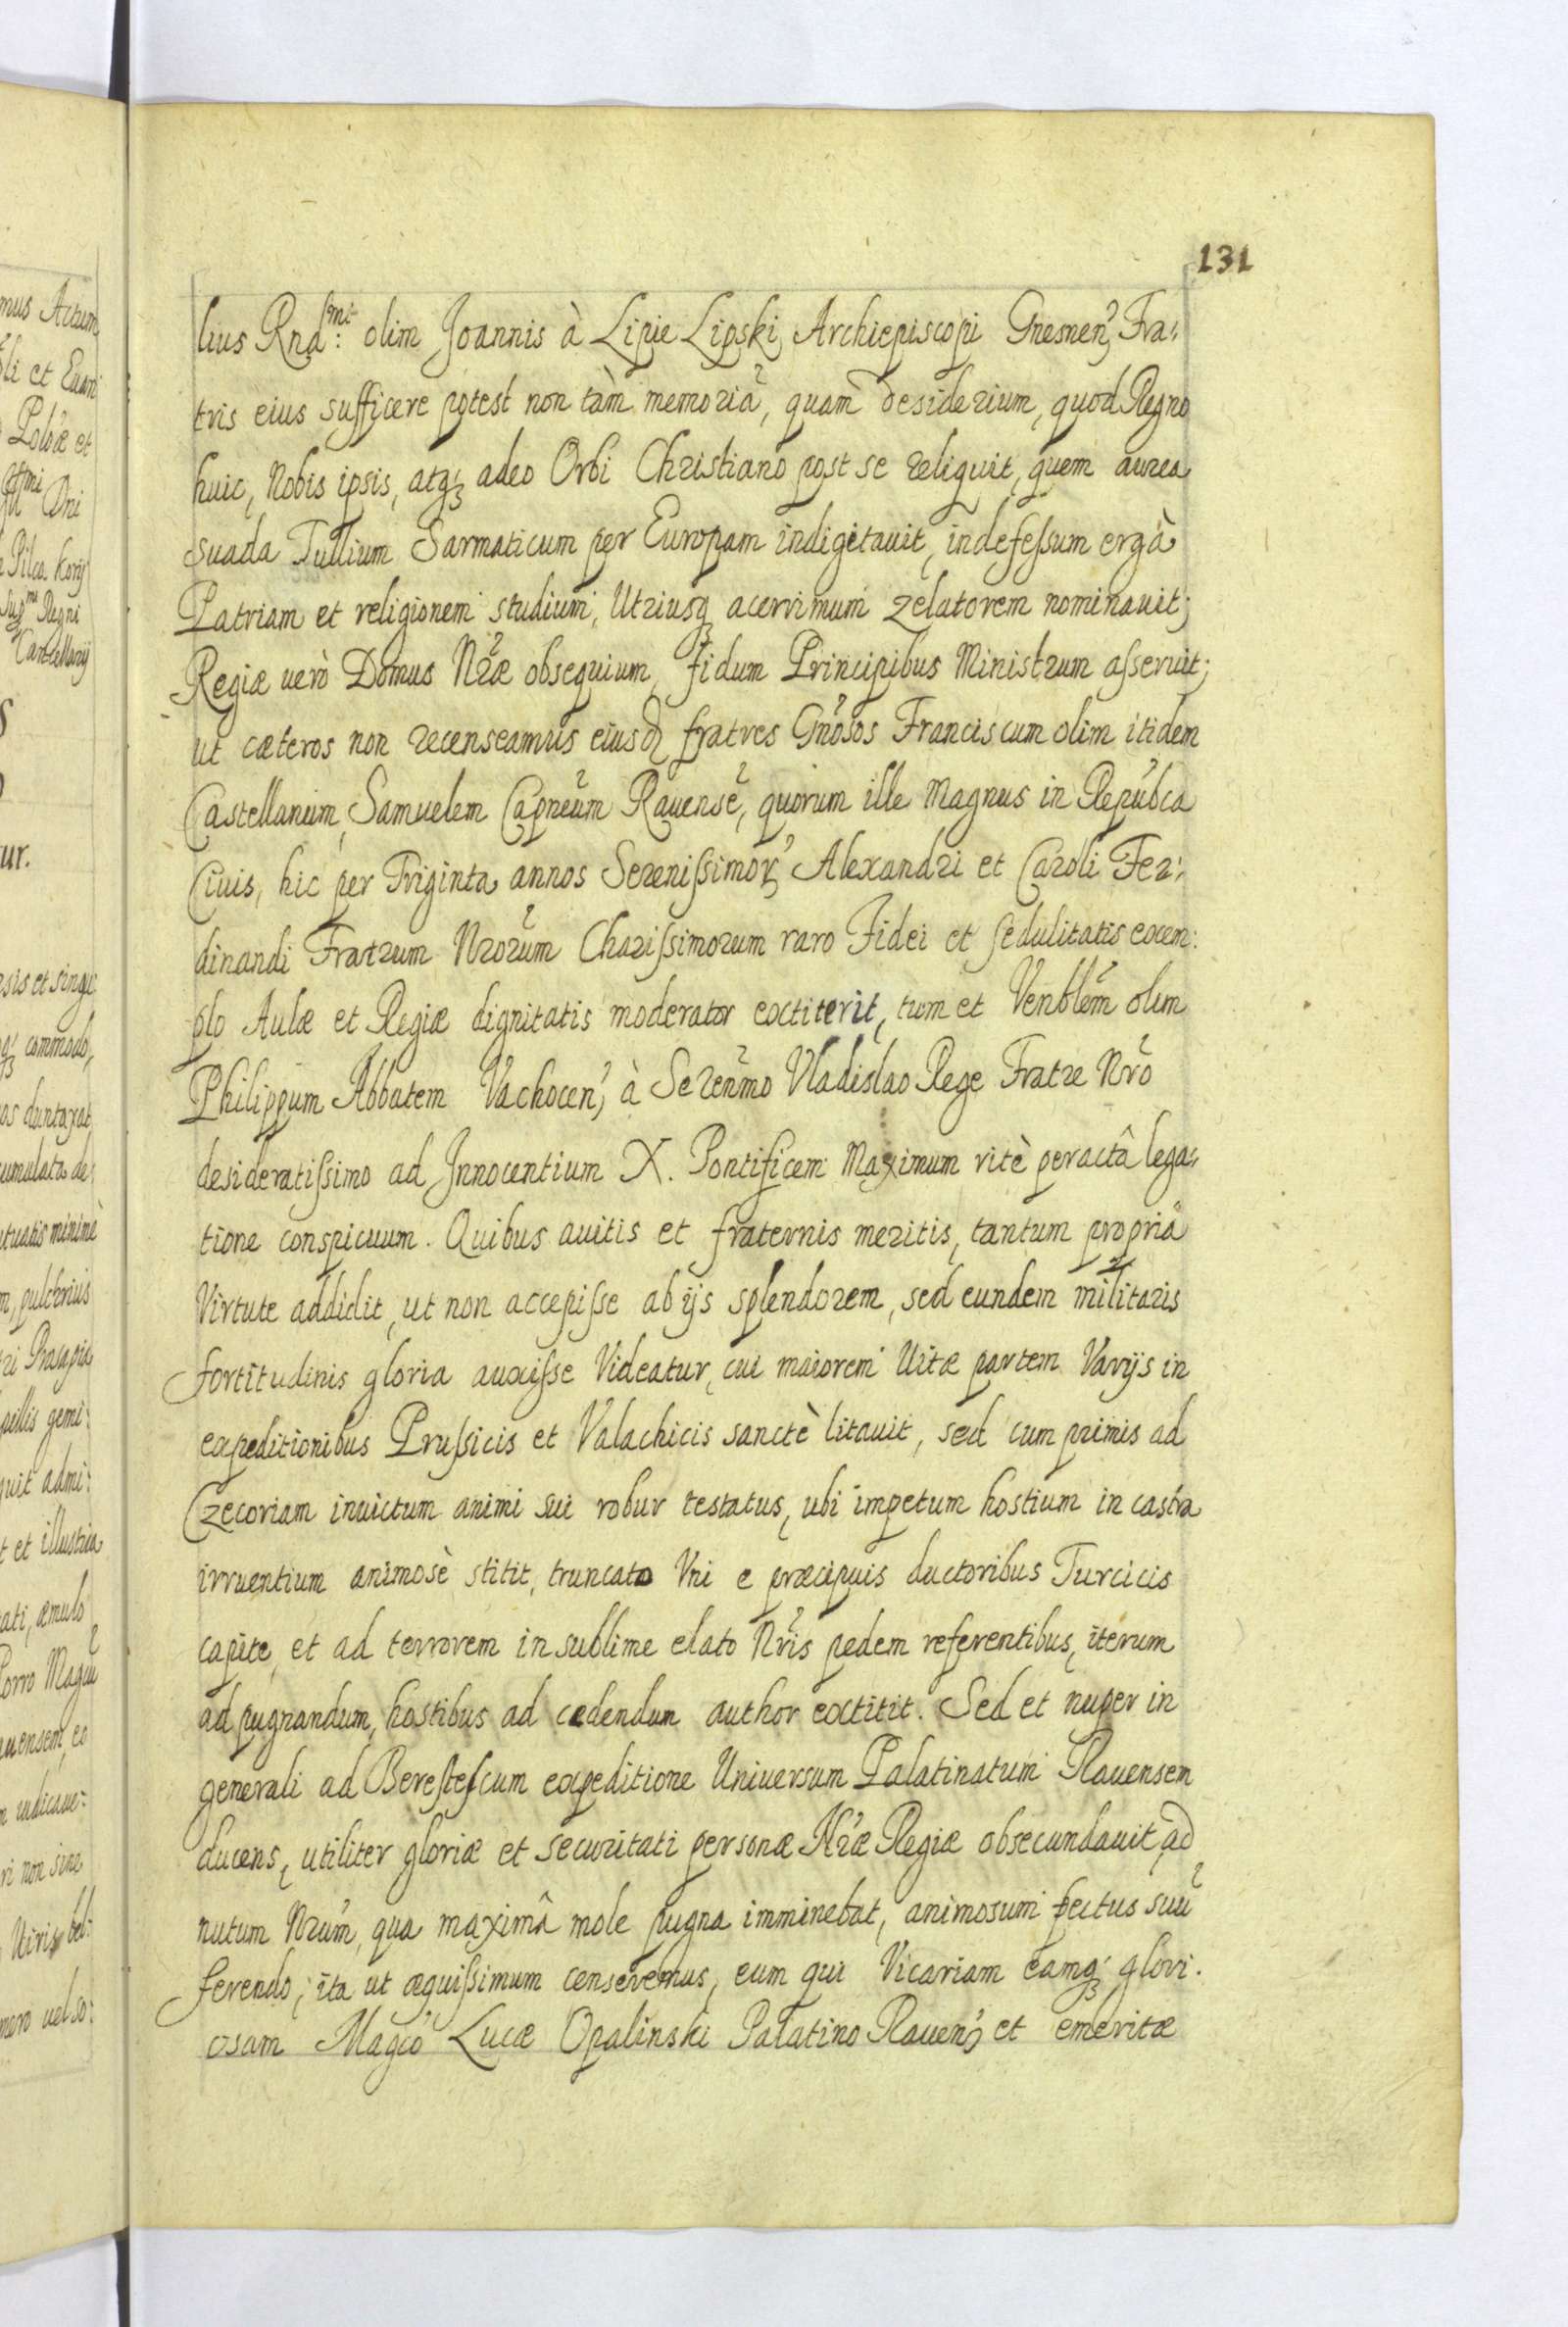 131
lius Rnd^mi: olim Joannis à Lipie Lipski Archiepiscopi Gnesnen̓, Fra-
tris eius sufficere potest non tàm memoriã, quam desiderium, quod Regno
huic, Nobis ipsis, atqꝫ adeo Orbi Christiano post se reliquit, quem aurea
suada Tullium Sarmaticum per Europam indigitauit, indefeſsum ergà
Patriam et religionem studium, Utriusqꝫ acerrimum zelatorem nominauit;
Regiæ uerò Domus Nr̃æ obsequium, fidum Principibus Ministrum aſseruit;
ut cæteros non recenseamus eiusdꝫ fratres Gñosos Franciscum olim itidem
Castellanum, Samuelem Capneũm Rauensẽ, quorum ille Magnus in Repub̃ca
Ciuis, hic per Triginta annos Sereniſsimoꝝ Alexandri et Caroli Fer-
dinandi Fratrum Nrorũm Chariſsimorum raro Fidei et ſedulitatis exem:
plo Aulæ et Regiæ dignitatis moderator extiterit, tum et Venblẽm olim
Philippum Abbatem Vachocen̓, à Serenm̃o Vladislao Rege Fratre Nrõ
desideratiſsimo ad Innocentium X. Pontificem Maximum ritè peractâ lega-
tione conspicuum. Quibus auitis et fraternis meritis, tantum propriâ
Virtute addidit, ut non accepiſse ab ijs splendorem, sed eundem militaris
fortitudinis gloria auxiſse Videatur, cui maiorem Uitæ partem Varijs in
expeditionibus Pruſsicis et Valachicis sanctè litauit, sed cum primis ad
Czecoriam inuictum animi sui robur testatus, ubi impetum hostium in castra
irruentium animosè stitit, truncato Vni e præcipuis ductoribus Turcicis
capite, et ad terrorem in sublime elato Nrĩs pedem referentibus, iterum
ad pugnandum, hostibus ad cedendum author extitit. Sed et nuper in
generali ad Bereſteſcum expeditione Uniuersum Palatinatum Rauensem
ducens, utiliter gloriæ et securitati personæ Nr̃æ Regiæ obsecundauit, ad
nutum Nrũm, qua maximâ mole pugna imminebat, animosum pectus suũ
ferendo, ita ut æquiſsimum censeremus, eum qui Vicariam eamqꝫ glori-
osam Magc̃o Lucæ Opalinski Palatino Rauen̓, et emeritæ